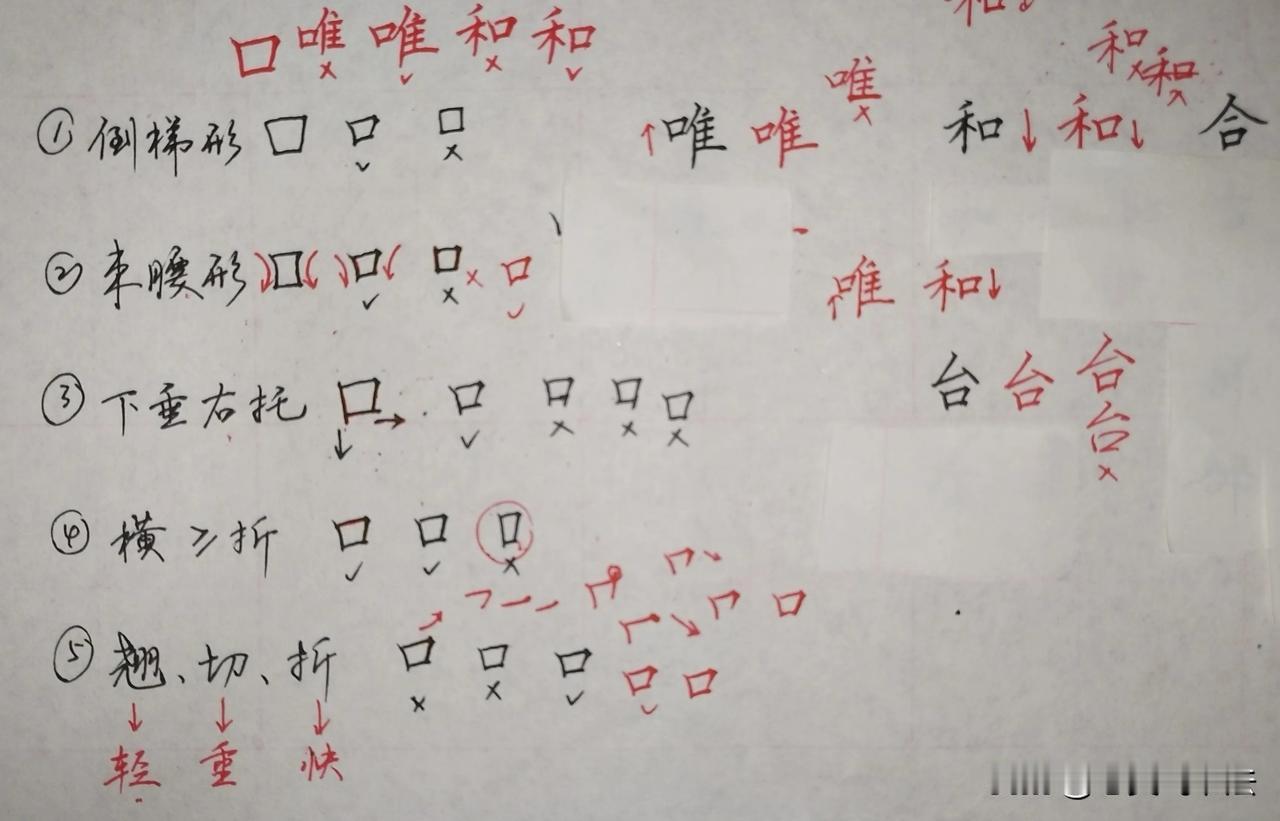 和↓
口 唯 唯 和 和
× ✓ × ✓
和 × 和 ×
唯 ×
① 倒梯形 口 口 口 ↑唯 唯 和↓ 和↓ 合
✓ ×
② 束腰形 口 口 口 × 口 ↑唯 和↓
✓ × ✓
③ 下垂右托 口 口 口 口 口 台 台 台
↓ → ✓ × × × 台 ×
④ 横≥折 口 口 口
✓ ✓ ×
⑤ 翘、切、折 口 口 口 口 口 口
× × ✓ ✓
↓ ↓ ↓
轻 重 快